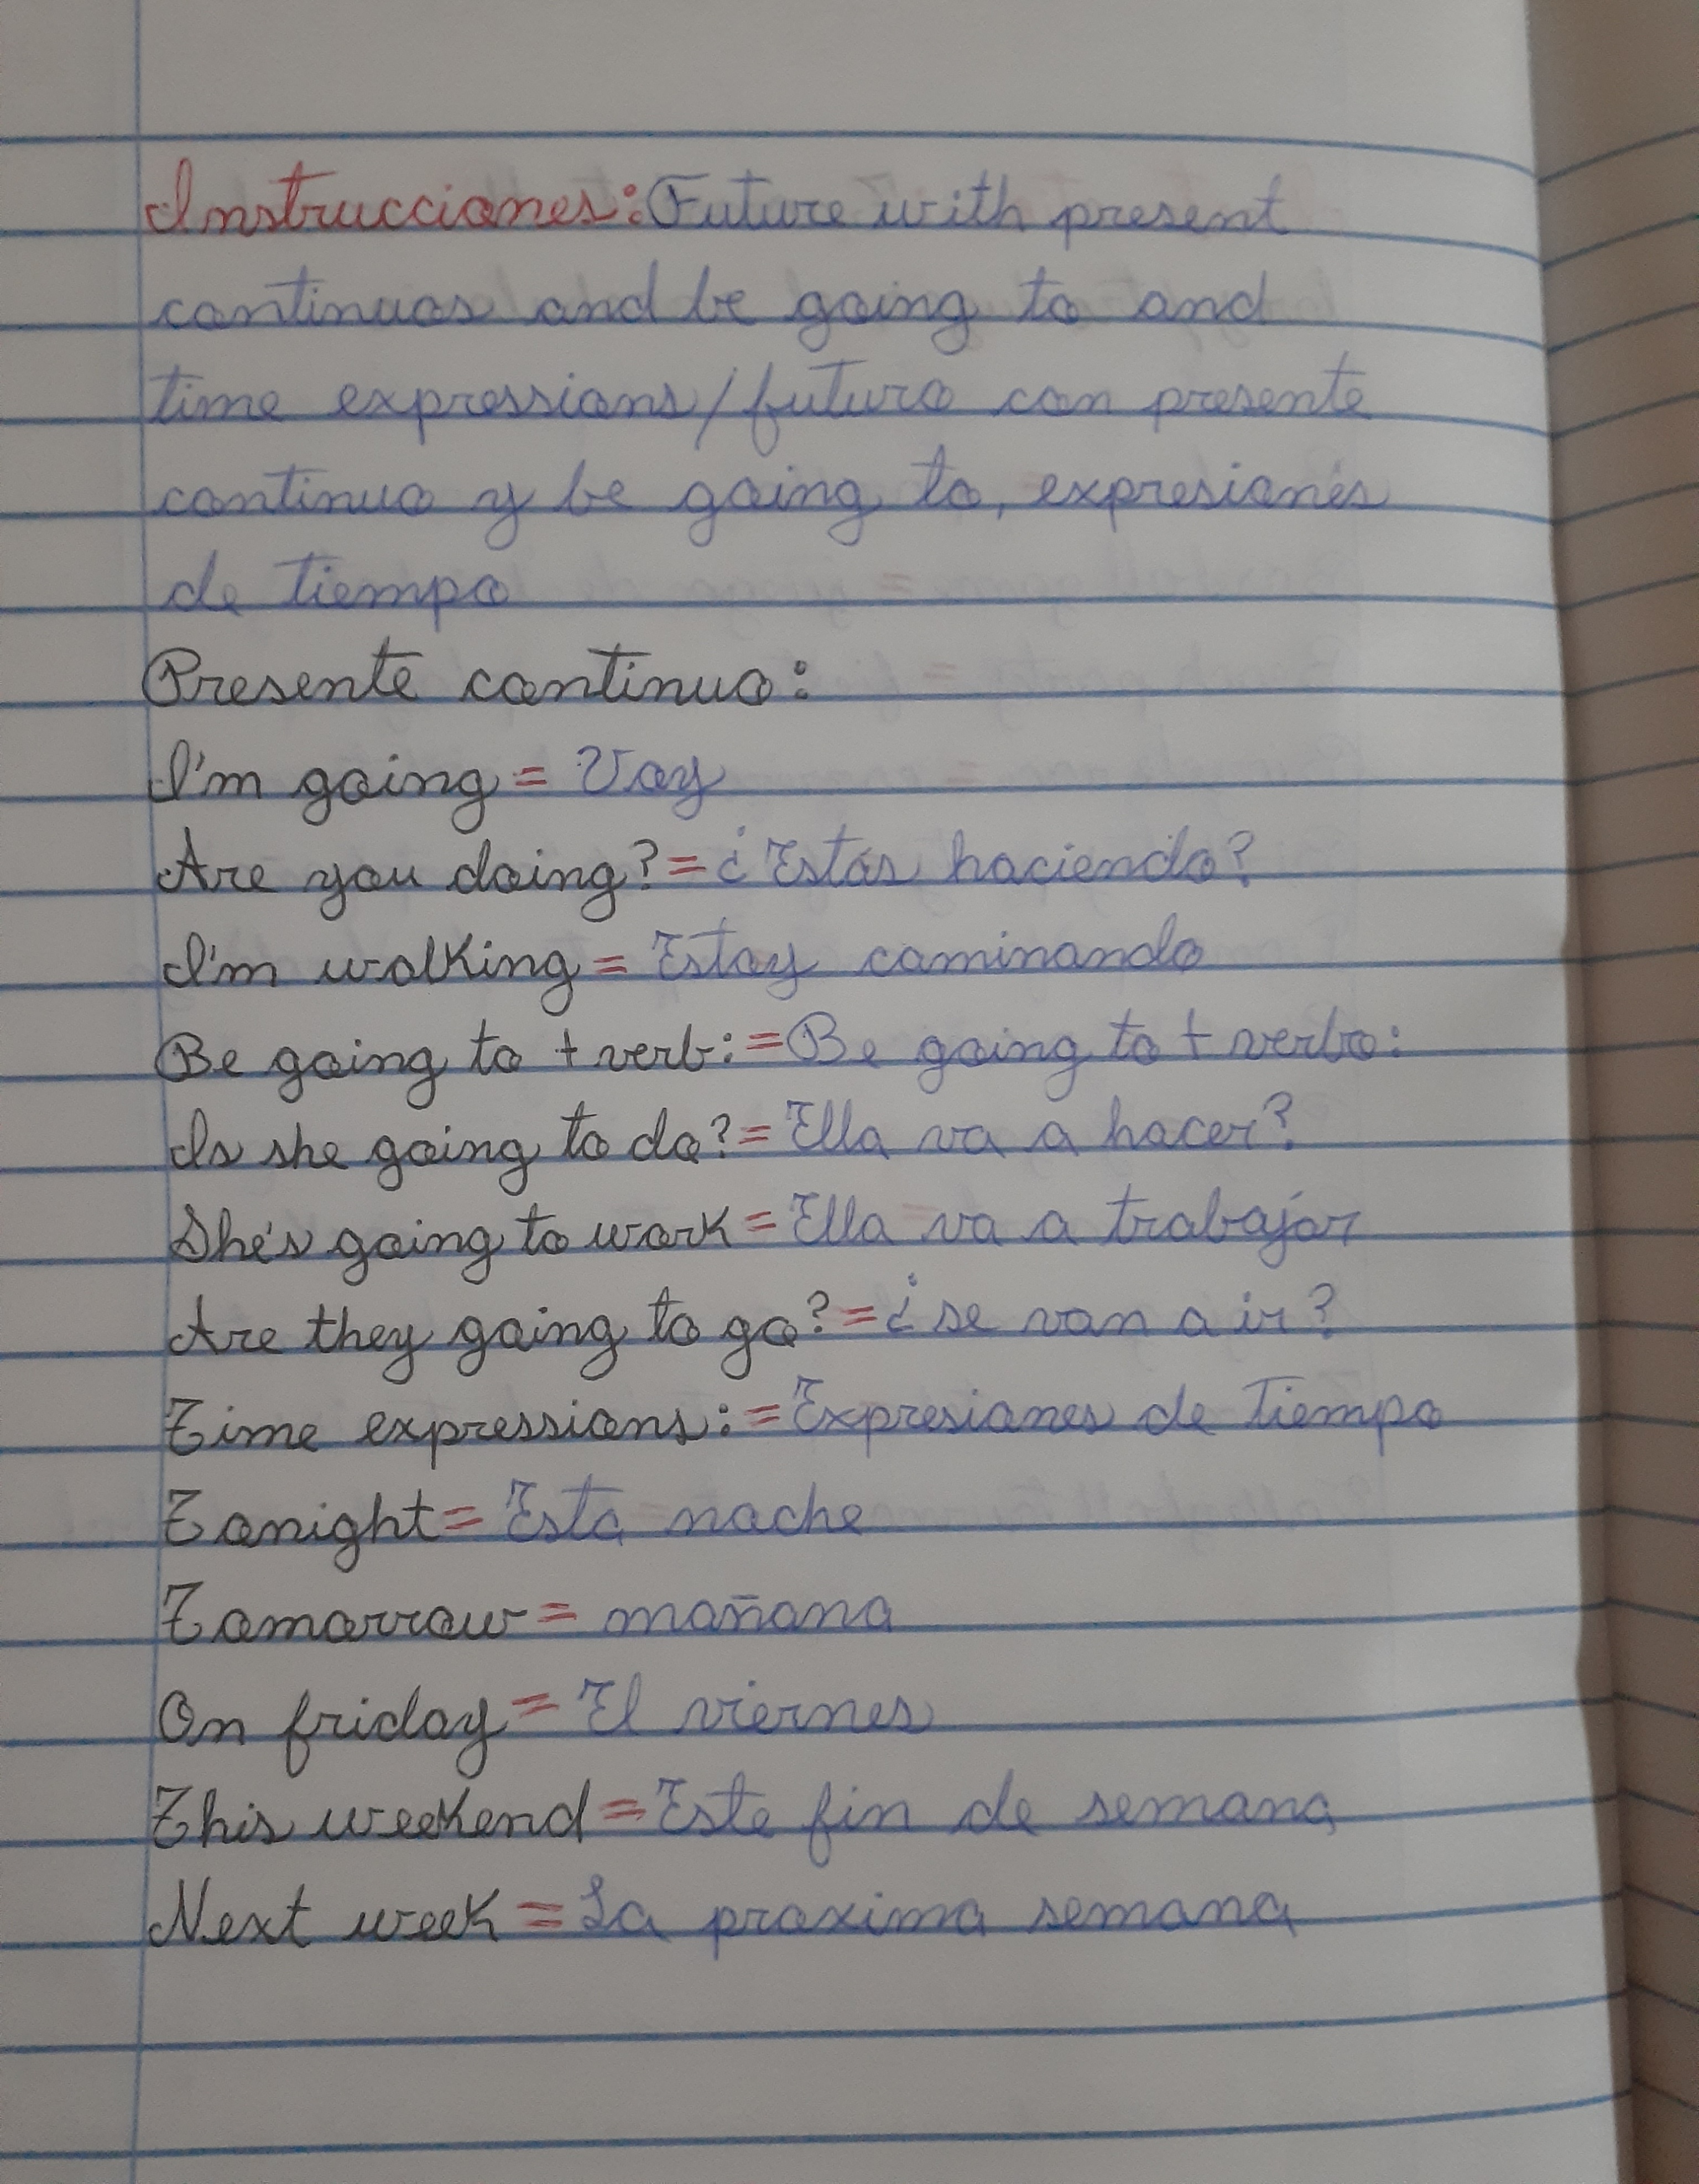 Instrucciones: Future with present
continuos and be going to and
time expressions/futuro con presente
continuo y be going to, expresiones
de tiempo
Presente continuo:
I'm going = Voy
Are you doing? = ¿Estás haciendo?
I'm walking = Estoy caminando
Be going to + verb: = Be going to + verbo:
Is she going to do? = Ella va a hacer?
She's going to work = Ella va a trabajar
Are they going to go? = ¿se van a ir?
Time expressions: = Expresiones de tiempo
Tonight = Esta noche
Tomorrow = mañana
On friday = El viernes
This weekend = Este fin de semana
Next week = La proxima semana